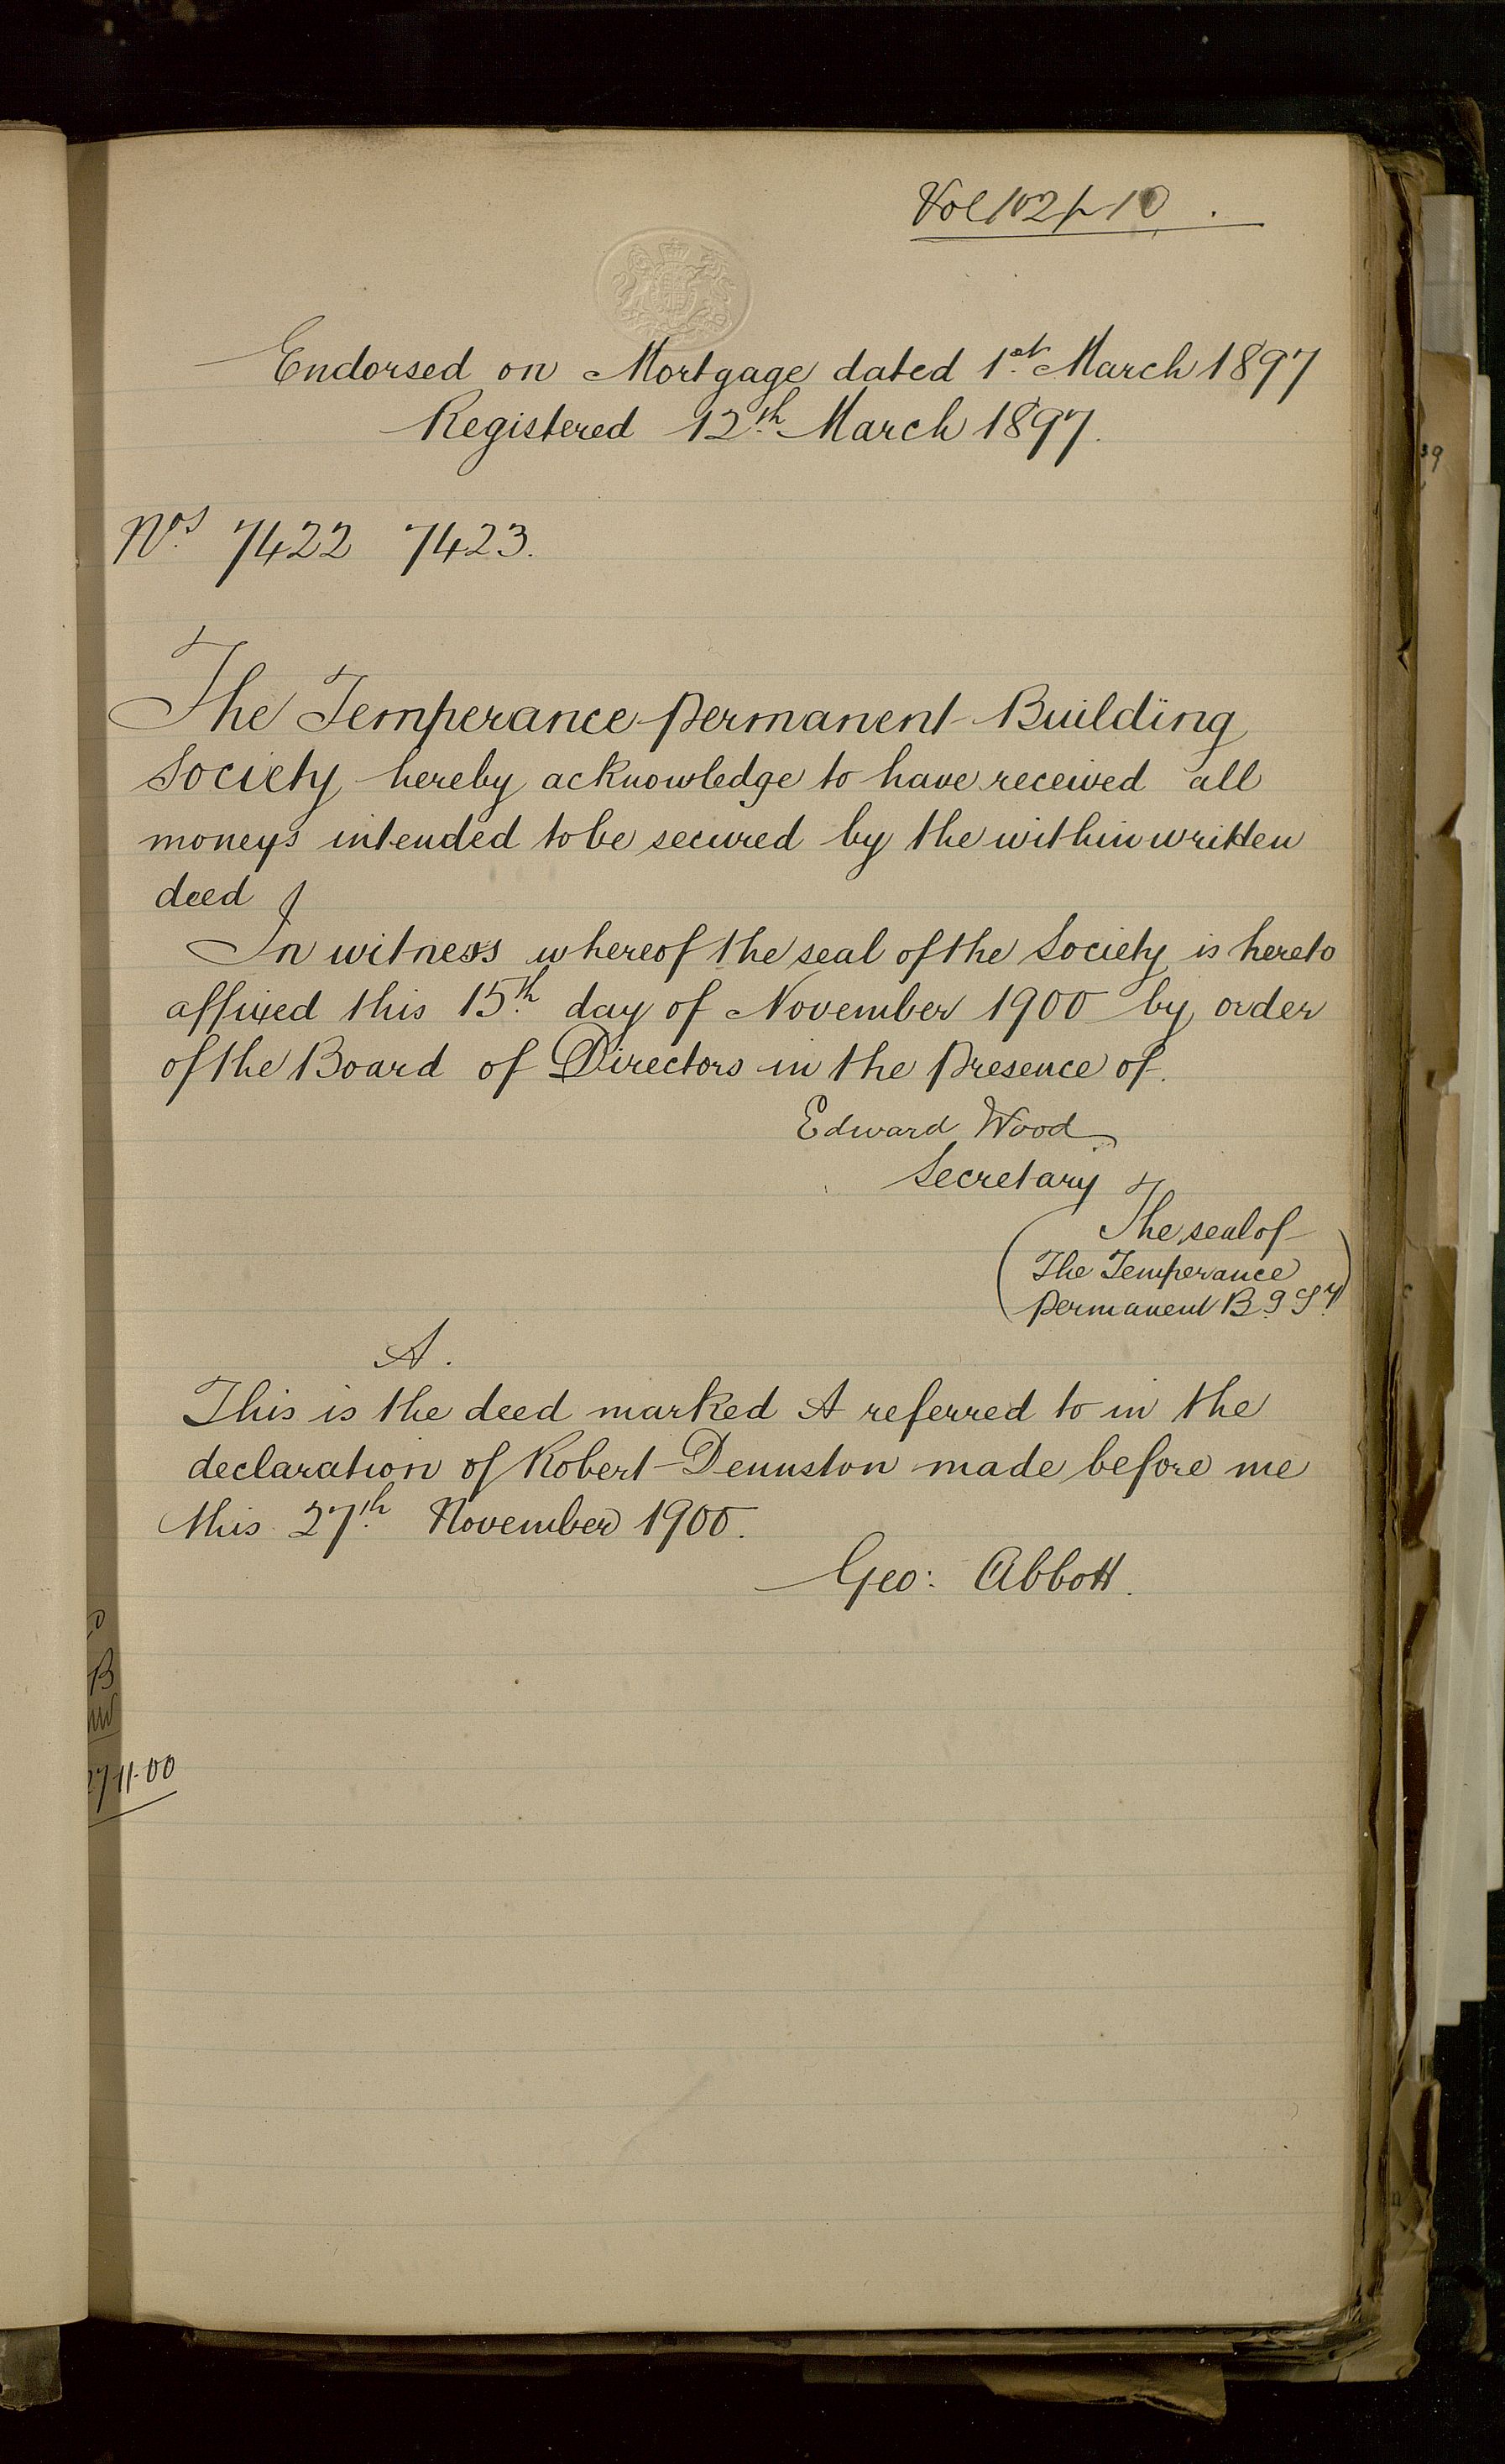 Vol 102 p 10.
Endorsed on Mortgage dated 1st March 1897
Registered 12th March 1897.
Nos 7422 7423.
The Temperance permanent Building
Society hereby acknowledge to have received all
moneys intended to be secured by the within written
deed
In witness whereof the seal of the Society is hereto
affixed this 15th day of November 1900 by order
of the Board of Directors in the presence of.
Edward Wood
Secretary
(The seal of
The Temperance
permanent B.g Sy)
A.
This is the deed marked A referred to in the
declaration of Robert Dennston made before me
this 27th November 1900.
Geo: Abbott.
B
27-11-00
39